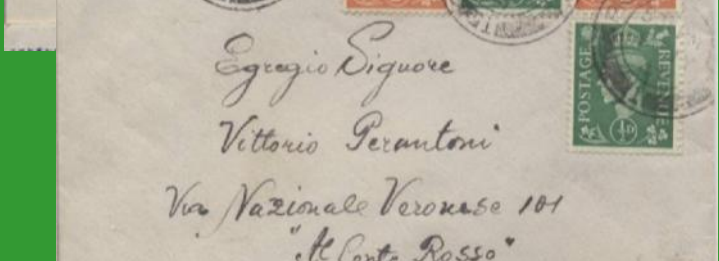 Egregio Signore
Vittorio Perantoni
Via Nazionale Veronese 101
"Al Conte Rosso"
POSTAGE
REVENUE
½D